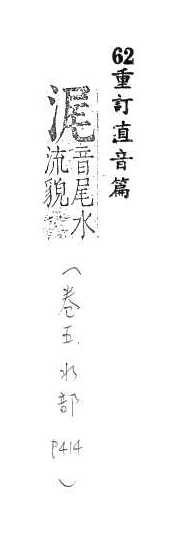 62重訂直音篇
浘
音尾水
流貌
(卷五.水部 P414)